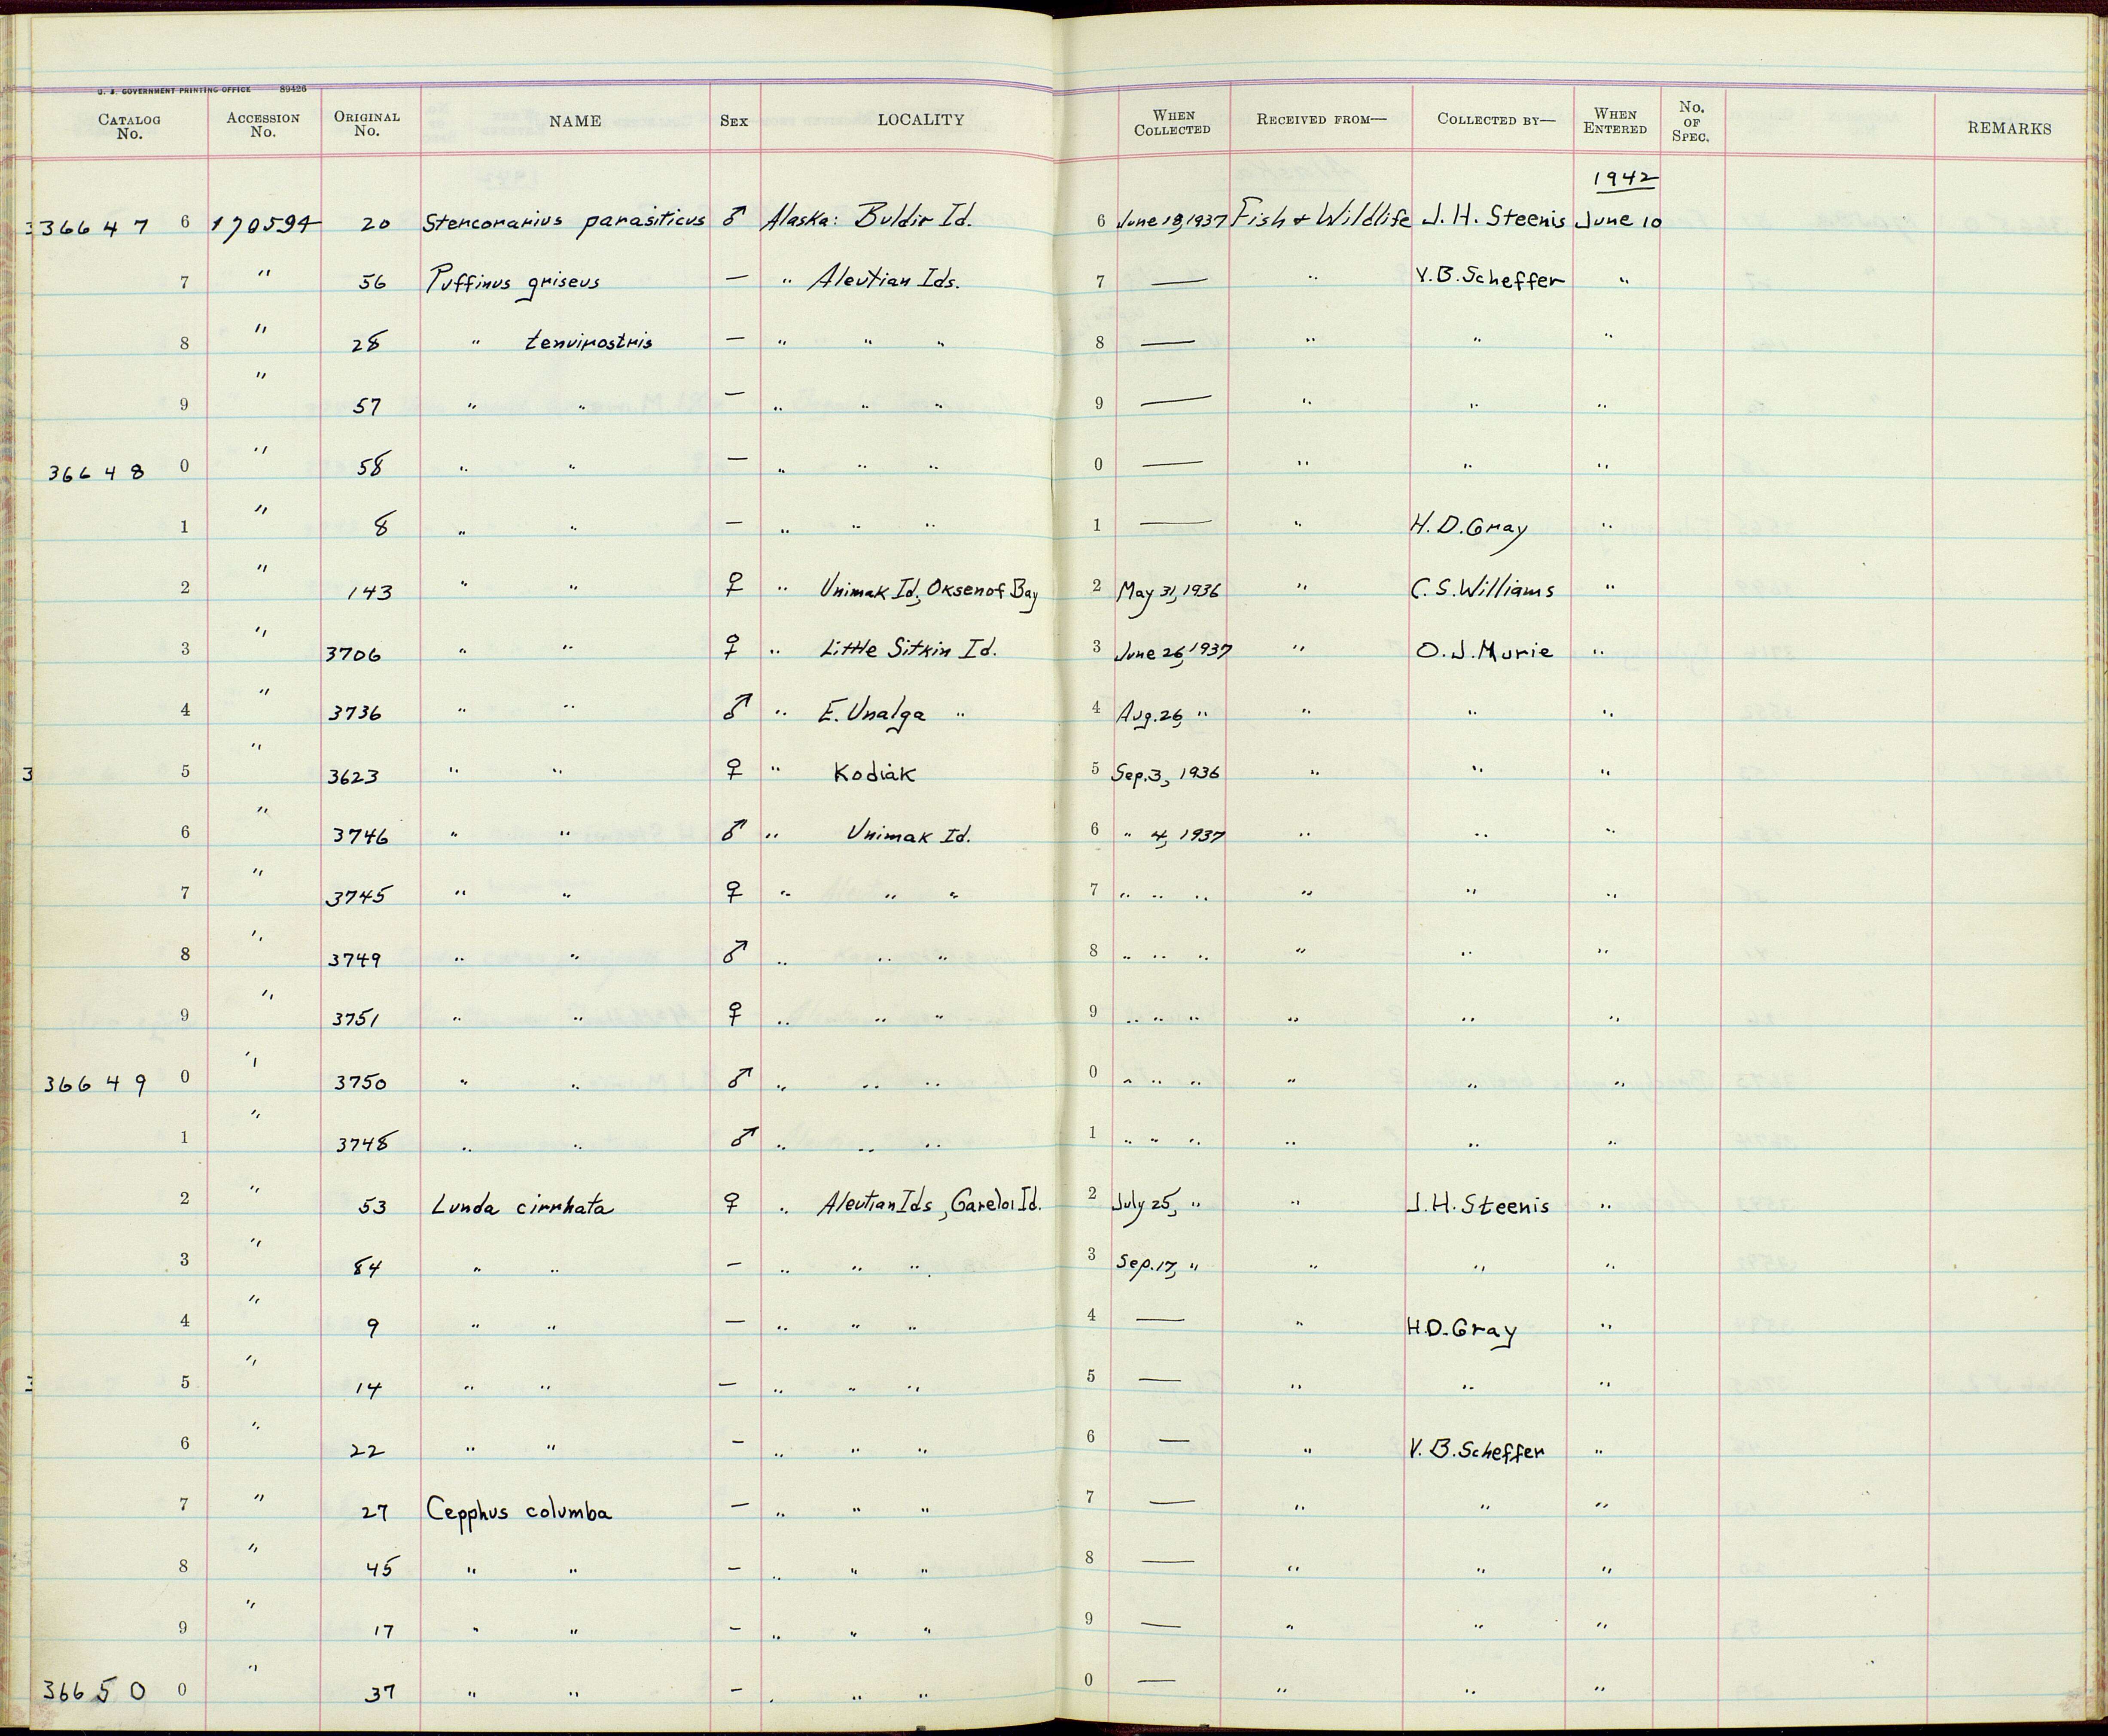 U. S. GOVERNMENT PRINTING OFFICE 89426
CATALOG No. ACCESSION No. ORIGINAL No. NAME SEX LOCALITY WHEN COLLECTED RECEIVED FROM— COLLECTED BY— WHEN ENTERED No. OF SPEC. REMARKS
1942
36647 6 170594 20 Stercorarius parasiticus ♂ Alaska: Buldir Id. 6 June 18, 1937 Fish & Wildlife J. H. Steenis June 10
7 " 56 Puffinus griseus — " Aleutian Ids. 7 — " V. B. Scheffer "
8 " 28 " tenuirostris — " " " 8 — " " "
9 " 57 " " — " " " 9 — " " "
36648 0 " 58 " " — " " " 0 — " " "
1 " 8 " " — " " " 1 — " H. D. Gray "
2 " 143 " " ♀ " Unimak Id., Oksenof Bay 2 May 31, 1936 " C. S. Williams "
3 " 3706 " " ♀ " Little Sitkin Id. 3 June 26, 1937 " O. J. Murie "
4 " 3736 " " ♂ " E. Unalga " 4 Aug. 26, " " " "
5 " 3623 " " ♀ " Kodiak 5 Sep. 3, 1936 " " "
6 " 3746 " " ♂ " Unimak Id. 6 " 4, 1937 " " "
7 " 3745 " " ♀ " " " 7 " " " " " "
8 " 3749 " " ♂ " " " 8 " " " " " "
9 " 3751 " " ♀ " " " 9 " " " " " "
36649 0 " 3750 " " ♂ " " " 0 " " " " " "
1 " 3748 " " ♂ " " " 1 " " " " " "
2 " 53 Lunda cirrhata ♀ " Aleutian Ids, Gareloi Id. 2 July 25, " " J. H. Steenis "
3 " 84 " " — " " " 3 Sep. 17, " " " "
4 " 9 " " — " " " 4 — " H. D. Gray "
5 " 14 " " — " " " 5 — " " "
6 " 22 " " — " " " 6 — " V. B. Scheffer "
7 " 27 Cepphus columba — " " " 7 — " " "
8 " 45 " " — " " " 8 — " " "
9 " 17 " " — " " " 9 — " " "
36650 0 " 37 " " — " " " 0 — " " "